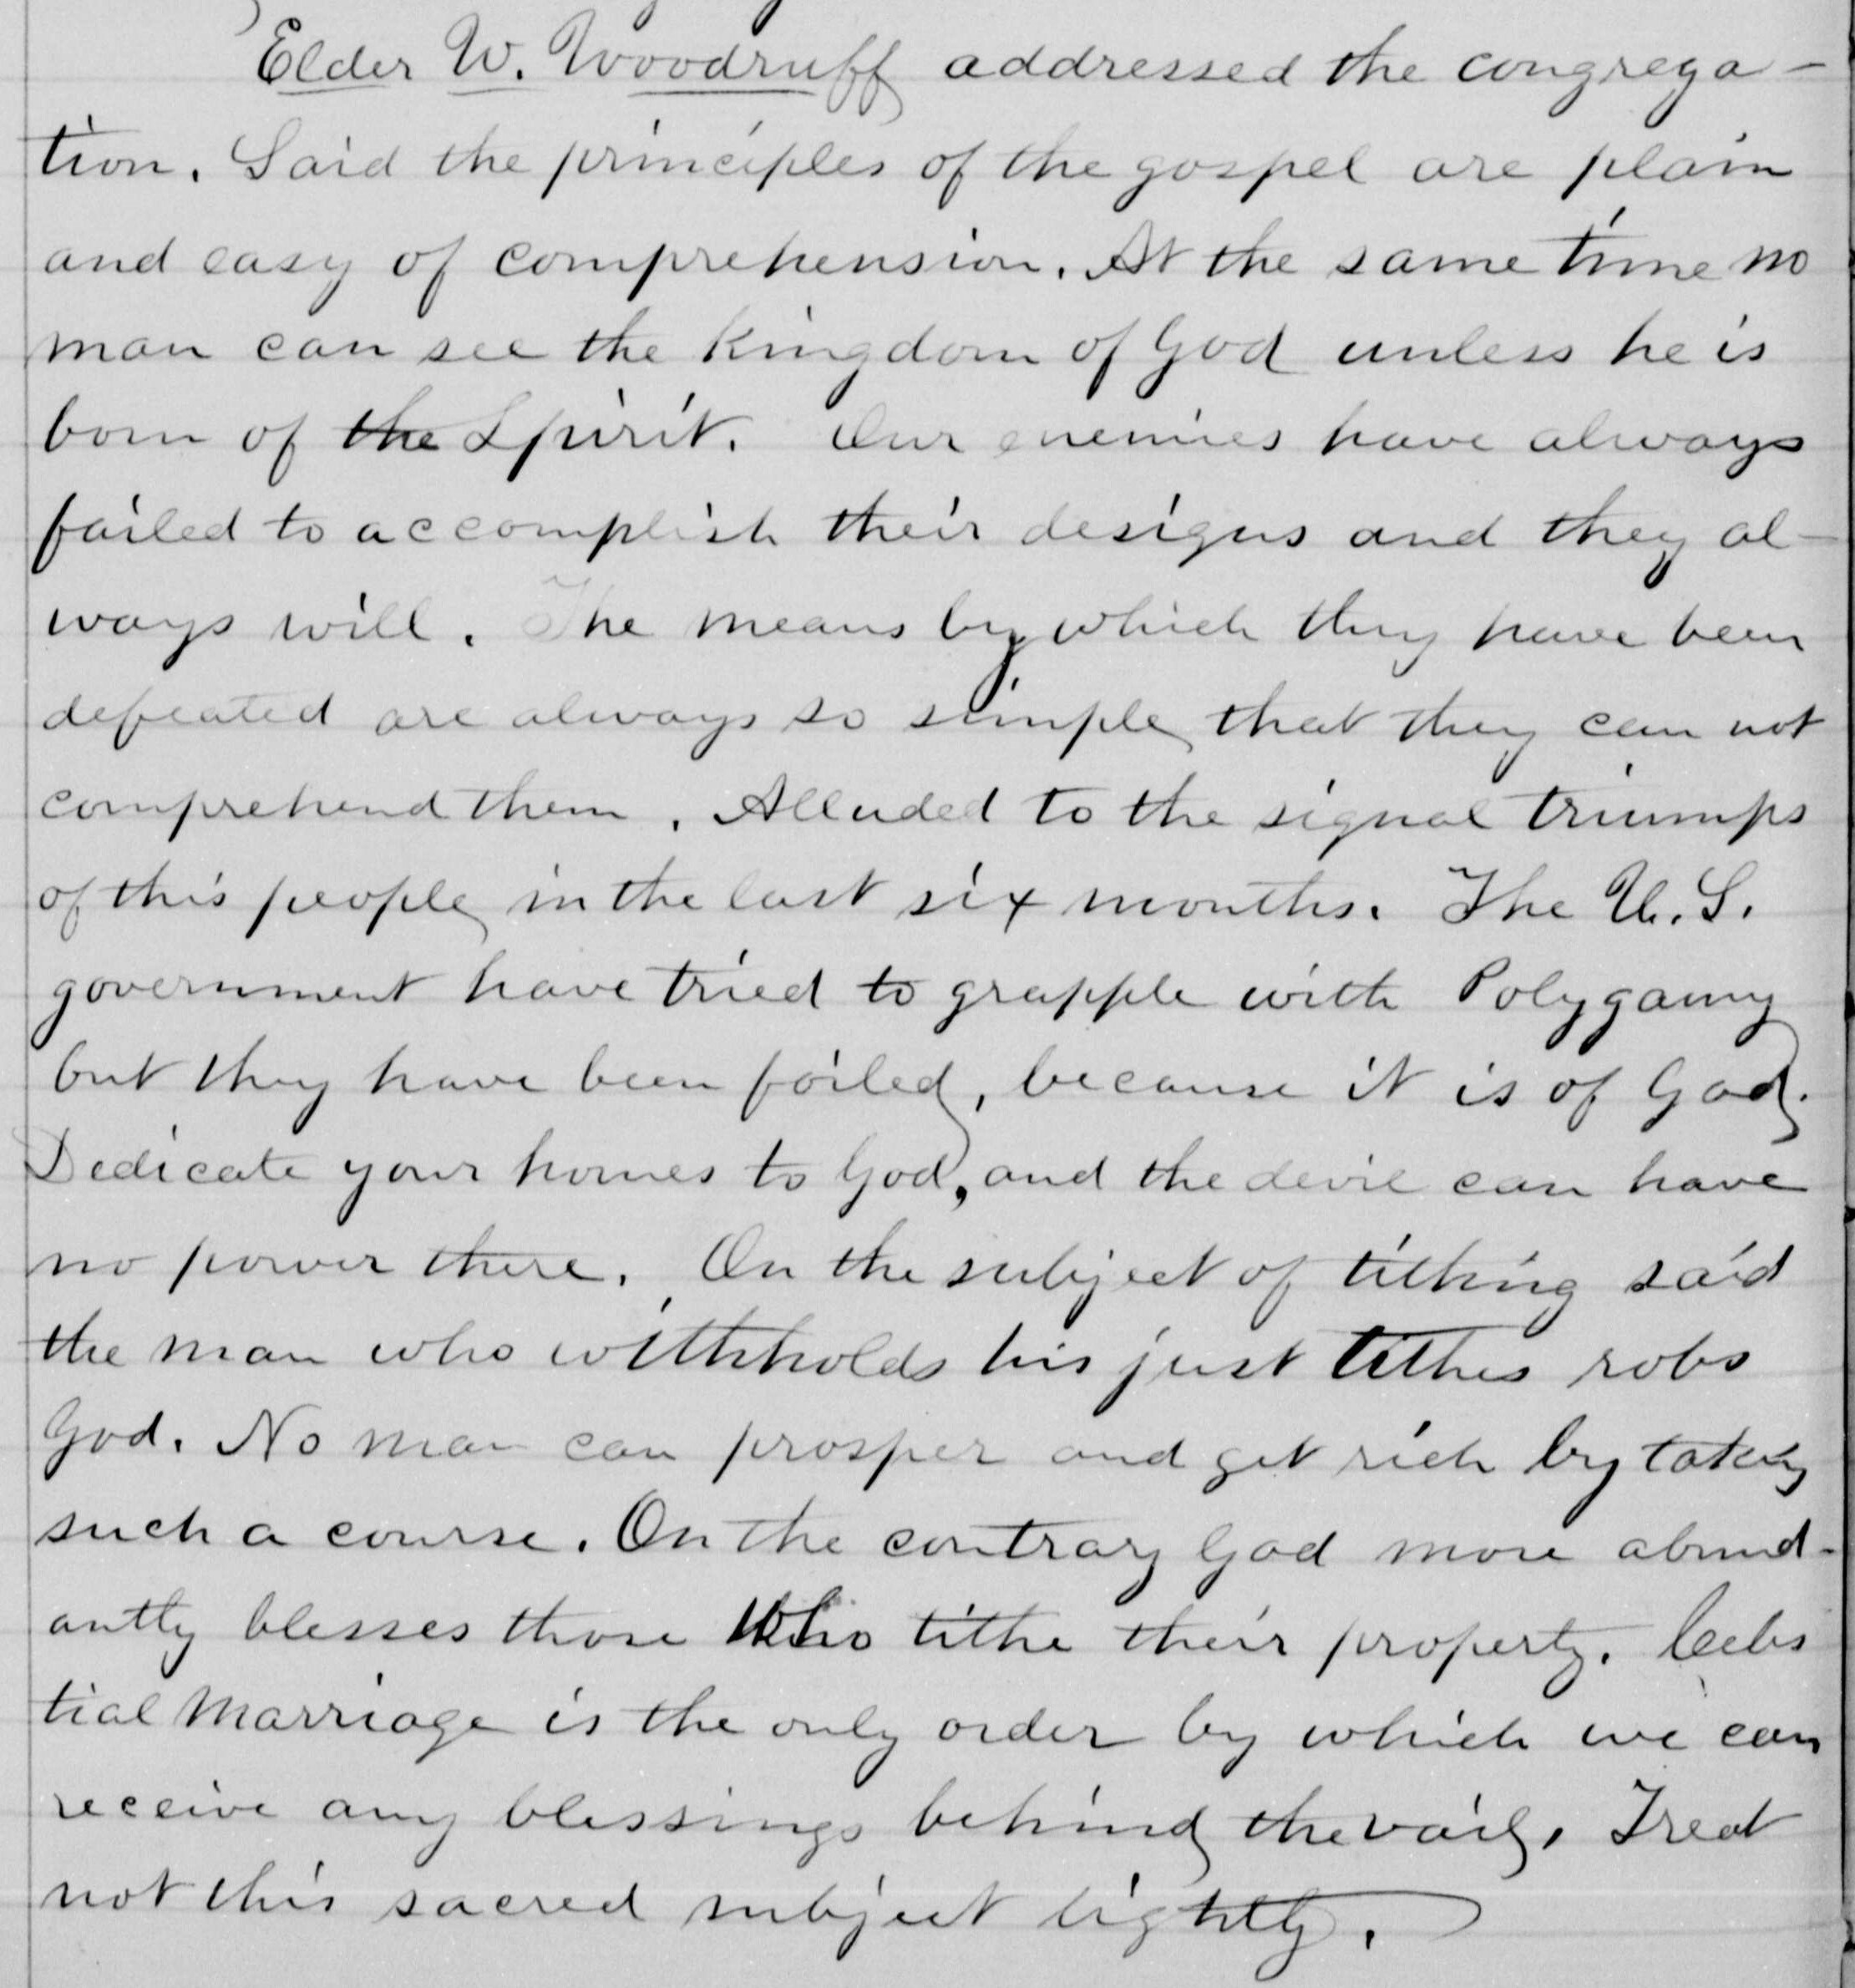 Elder W. Woodruff addressed the congrega-
tion. Said the principles of the gospel are plain
and easy of comprehension. At the same time no
man can see the Kingdom of God unless he is
born of the Spirit. Our enemies have always
failed to accomplish their designs and they al-
ways will. The means by which they have been
defeated are always so simple that they can not
comprehend them. Alluded to the signal triumps
of this people in the last six months. The U.S.
government have tried to grapple with Polygamy
but they have been foiled, because it is of God.
Dedicate your homes to God, and the devil can have
no power there. On the subject of tithing said
the man who withholds his just tithes robs
God. No man can prosper and get rich by taking
such a course. On the contrary God more abund-
antly blesses those who tithe their property. Celes
tial Marriage is the only order by which we can
receive any blessings behind the vail. Treat
not this sacred subject lightly.